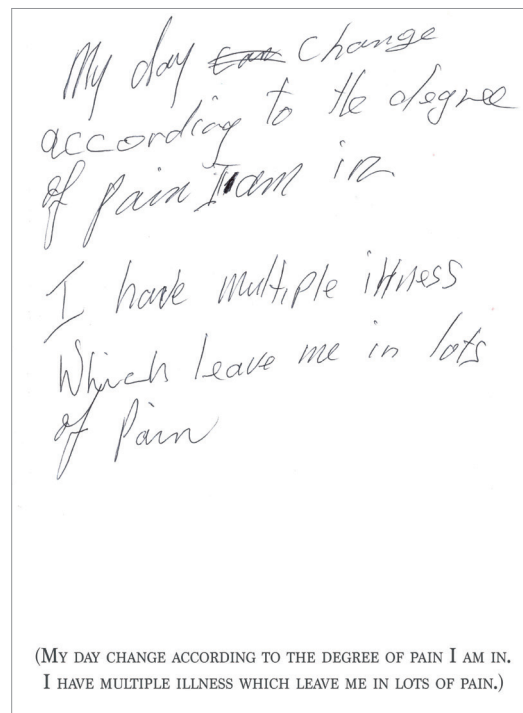 My day change
according to the degree
of pain I am in
I have multiple illness
Which leave me in lots
of Pain
(MY DAY CHANGE ACCORDING TO THE DEGREE OF PAIN I AM IN.
I HAVE MULTIPLE ILLNESS WHICH LEAVE ME IN LOTS OF PAIN.)